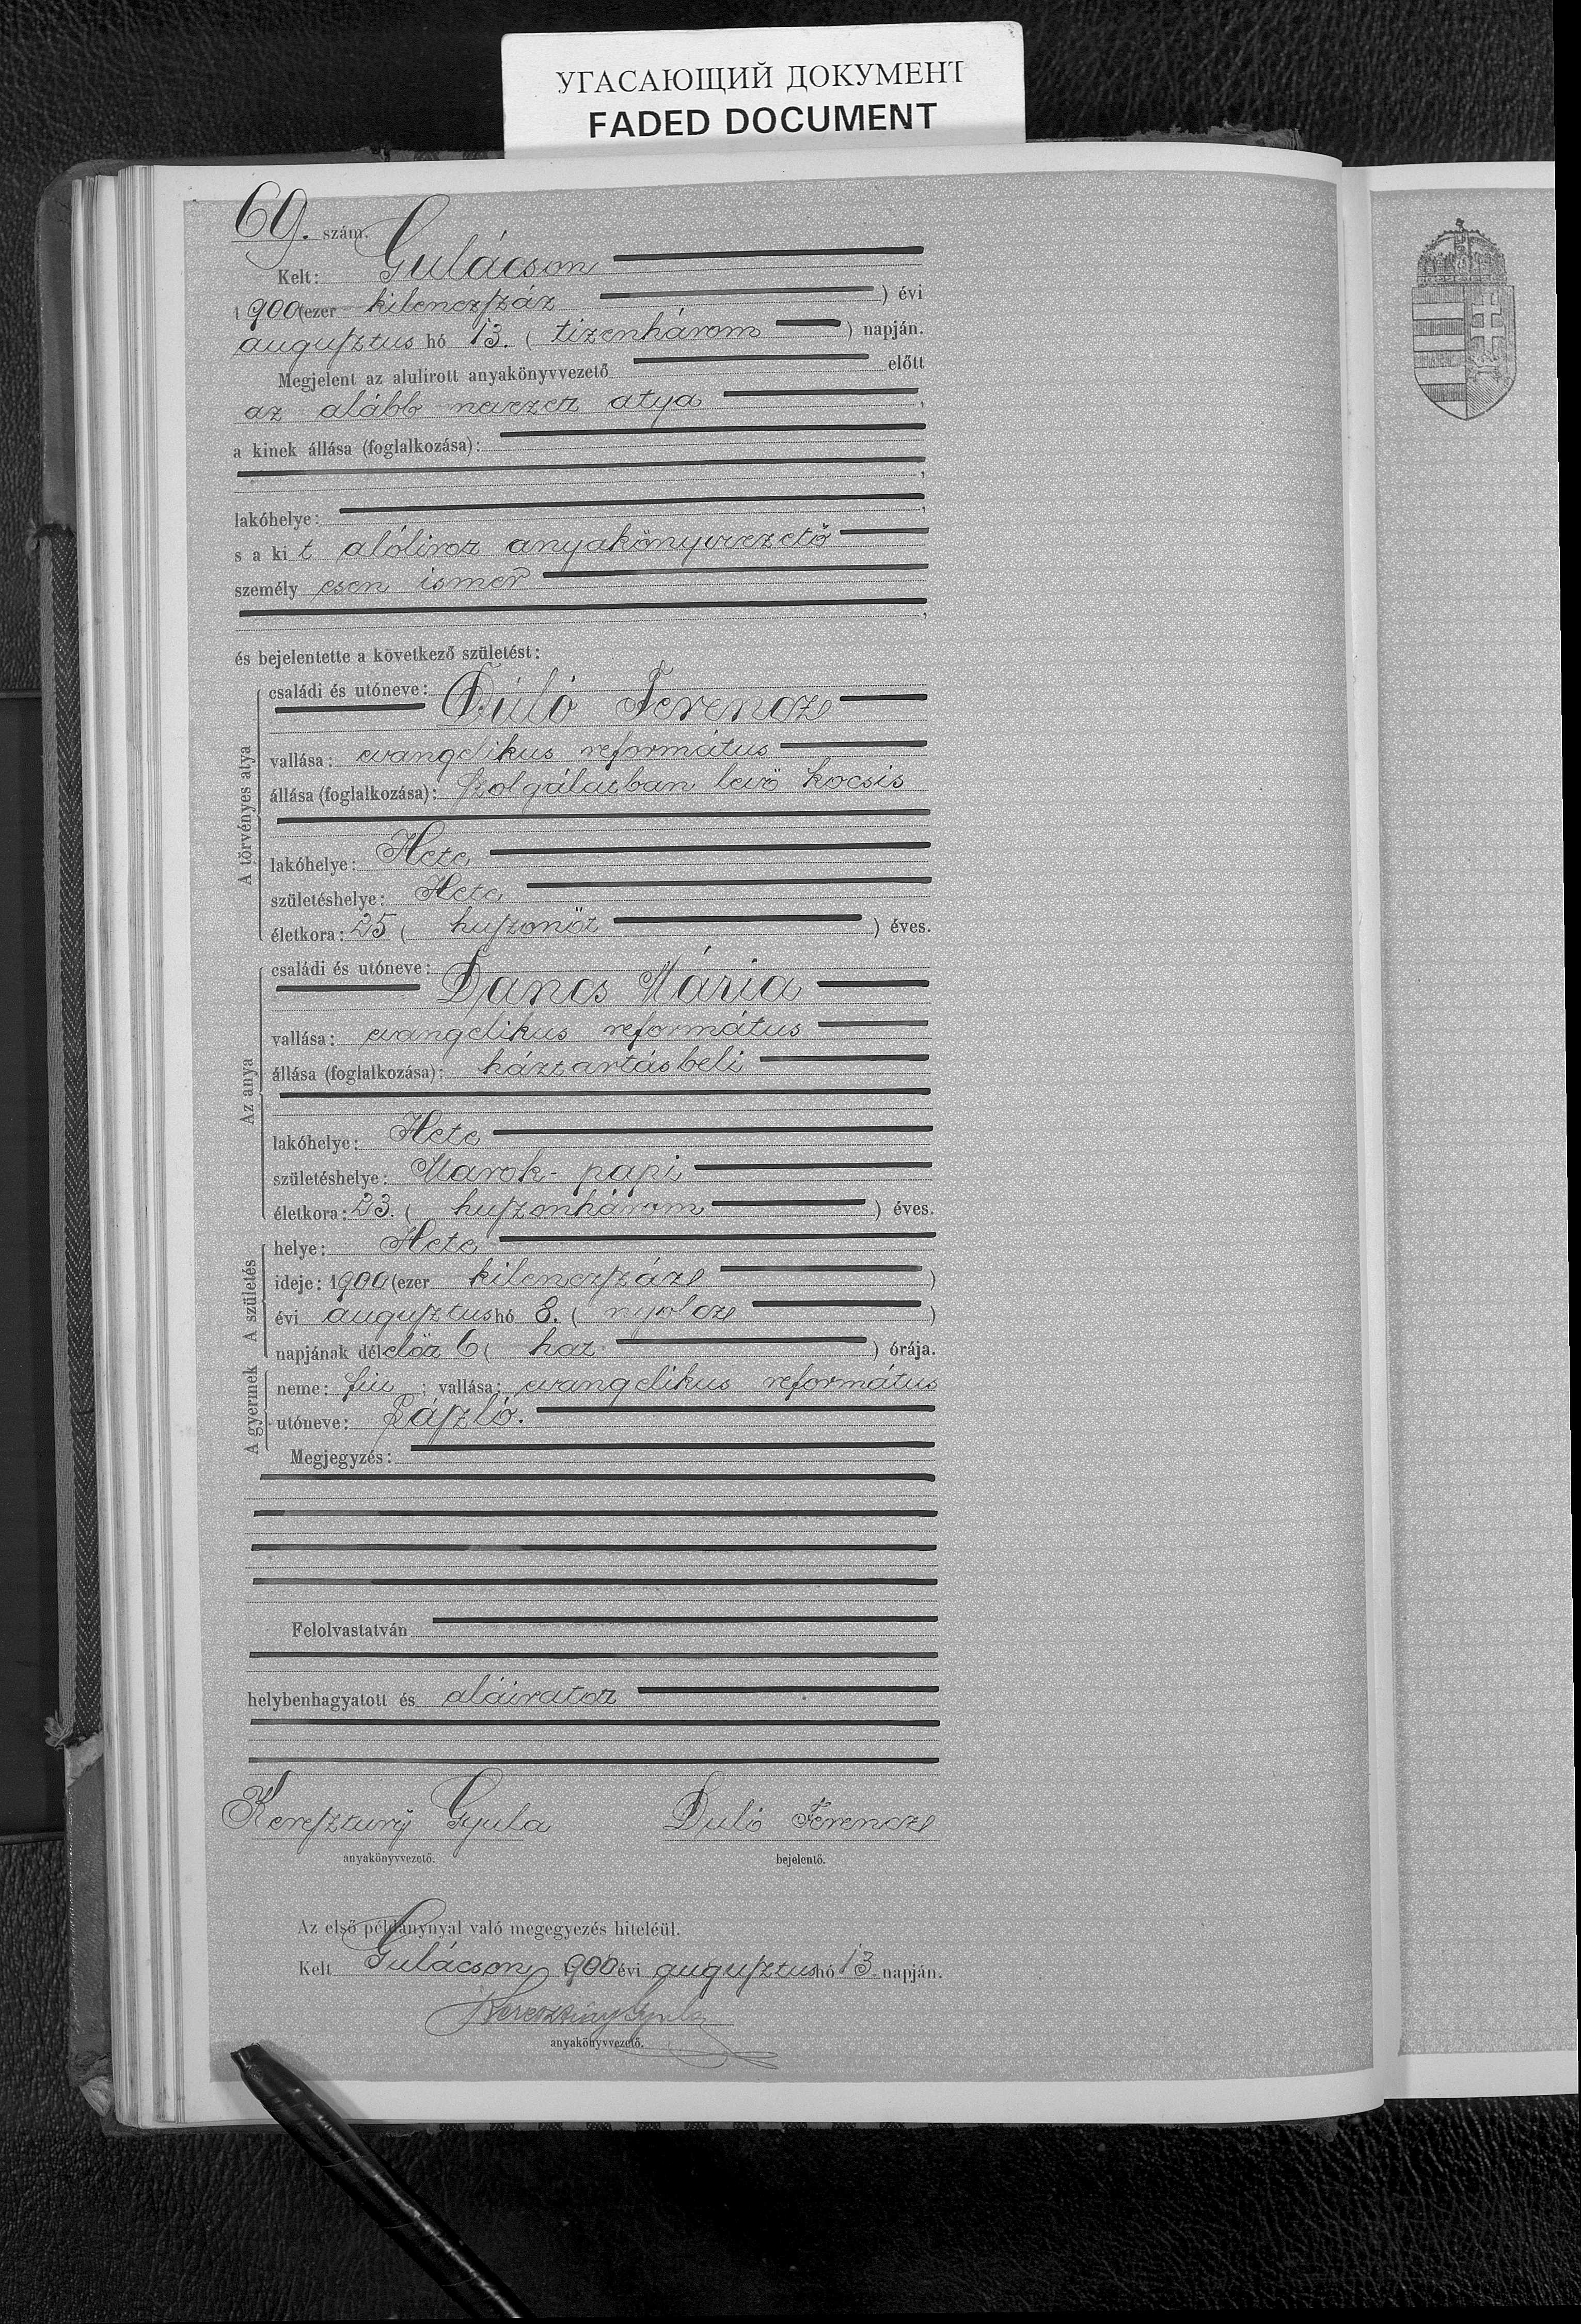 УГАСАЮЩИЙ ДОКУМЕНТ
FADED DOCUMENT
69. szám.
Kelt: Gulácson
1900 (ezer kilenczszáz ) évi
augusztus hó 13. ( tizenhárom ) napján.
Megjelent az alulirott anyakönyvvezető előtt
az alább nevezett atya ,
a kinek állása (foglalkozása):
,
lakóhelye: ,
s a kit alólirott anyakönyvvezető
személy esen ismer
,
és bejelentette a következő születést:
A törvényes atya
családi és utóneve: Duló Ferencz
vallása: evangelikus református
állása (foglalkozása): szolgálatban levő kocsis
lakóhelye: Hete
születéshelye: Hete
életkora: 25 ( huszonöt ) éves.
Az anya
családi és utóneve: Dancs Mária
vallása: evangelikus református
állása (foglalkozása): háztartásbeli
lakóhelye: Hete
születéshelye: Marok-papi
életkora: 23. ( huszonhárom ) éves.
A születés
helye: Hete
ideje: 1900 (ezer kilenczszáz )
évi augusztus hó 8. ( nyolcz )
napjának délelőtt 6 ( hat ) órája.
A gyermek
neme: fiu ; vallása: evangelikus református
utóneve: László.
Megjegyzés:
Felolvastatván
helybenhagyatott és aláiratott
Keresztury Gyula Duló Ferencz
anyakönyvvezető. bejelentő.
Az első példánynyal való megegyezés hiteléül.
Kelt Gulácson 1900 évi augusztus hó 13. napján.
Keresztury Gyula
anyakönyvvezető.